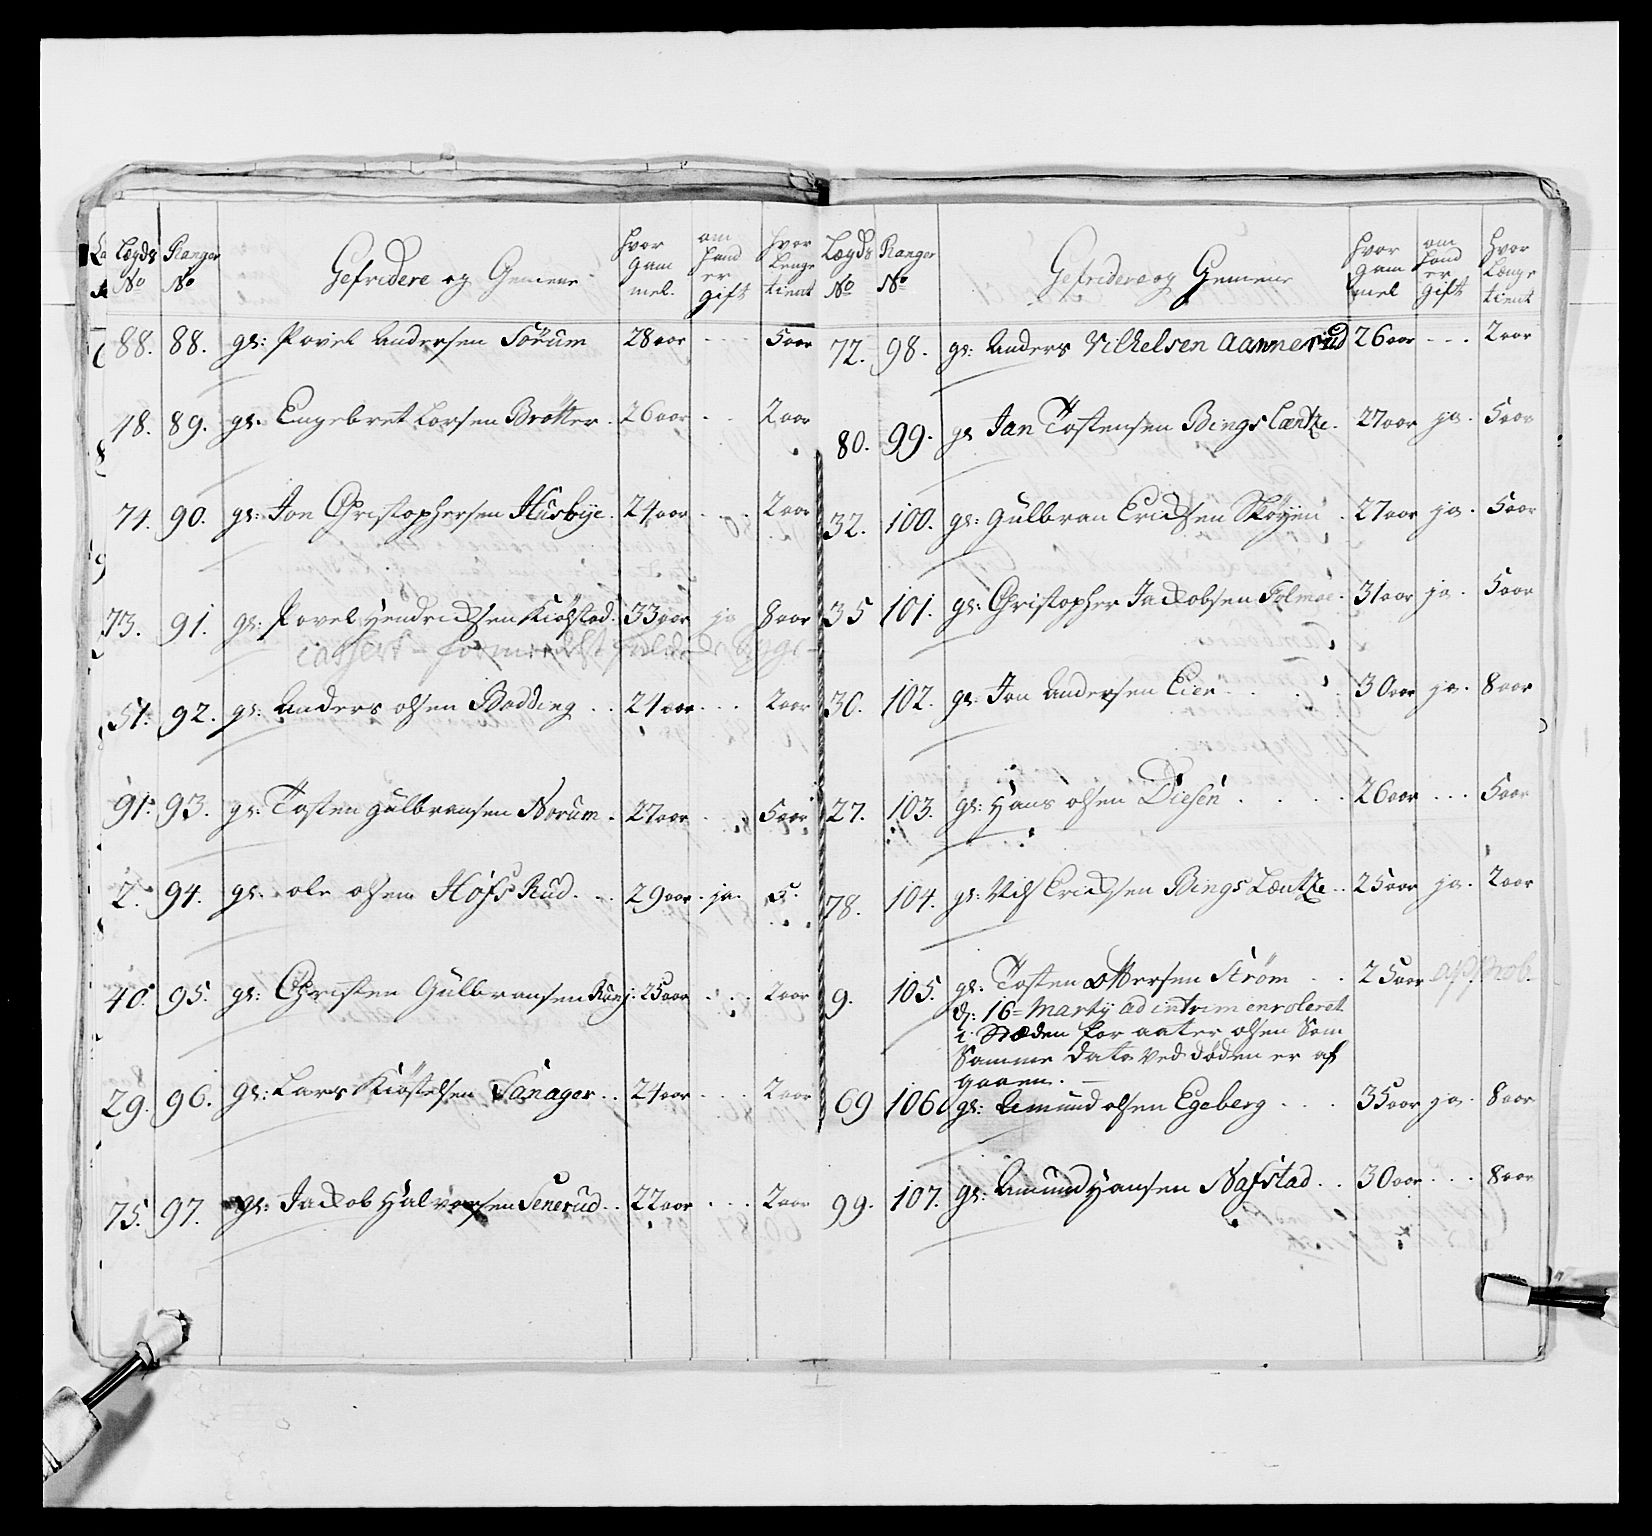 Lægds No Ranger No Gefridere og Gemene hvor gam mel. om hand er gift hvor lenge tient
88. 88. gl: Povel Andersen Sörum 28 aar - - - 5 aar
48. 89. gl: Engebret Larsen Brötter. 26 aar . . 2 aar
74. 90. gl: Jon Christophersen Husbije. 24 aar . . . 2 aar
73. 91. gl: Povel Hendrichsen Kiölstad. 33 aar ja 8 aar
Cassert formedelst
51. 92. gl: Anders olsen Bodding . . 24 aar . . . 2 aar
91. 93. gl: Tosten Gulbransen Norum . 27 aar . . 5 aar
2. 94. gl: ole olsen Höfs Rud . . . 29 aar . ja. 5.
40. 95. gl: Christen Gulbransen Rung. 25 aar . . . 2 aar
29. 96. gl: Lars Kiöstelsen Sanager . . 24 aar . . . 2 aar
75. 97. gl: Jacob Halvorsen Senerud . . 22 aar . . . 2 aar
Lægds No Ranger No Gefridere og Gemene hvor gam mel om hand er gift hvor Længe tient
72. 98. gl: Anders Vilhelsen Aannerud 26 aar - - . 2 aar
80. 99. gl Jan Tostensen Bings Læntze. 27 aar ja . 5 aar
32. 100. gl: Gulbran Erichsen Skøyen . 27 aar ja . 5 aar
35 101. gl: Christopher Jacobsen Tolmoe. 31 aar ja . 5 aar
30. 102. gl: Jon Andersen Eier . . . . 30 aar ja . 8 aar
27. 103. gl: Hans olsen Diesen . . . . 26 aar . . . 5 aar
78. 104. gl: Nils Erichsen Bings Læntze . . 25 aar ja . 2 aar
9. 105. gl: Tosten Ottersen Ström . . 25 aar app.
d: 16 = Martij ad intrim enroleret
i Stæden for aater olsen Som
Samme dato ved døden er af
gaaen. —
69 106 gl: Amund olsen Egeberg . . . 35 aar ja . 8 aar
99. 107. gl: Amund Hansen Nafstad . . 30 aar . . . 8 aar